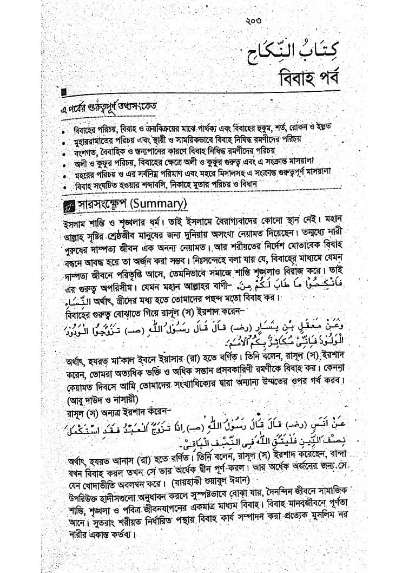 ২০৩
كِتَابُ النِّكَاحِ
বিবাহ পর্ব
এ পর্বের গুরুত্বপূর্ণ তথ্যসংকেত
বিবাহের পরিচয়, বিবাহ ও ক্রয়বিক্রয়ের মাঝে পার্থক্য এবং বিবাহের হুকুম, শর্ত, রোকন ও ইল্লত
মুহাররামাতের পরিচয় এবং স্থায়ী ও সাময়িকভাবে বিবাহ নিষিদ্ধ রমণীদের পরিচয়
বংশগত, বৈবাহিক ও স্তন্যপানের কারণে বিবাহ নিষিদ্ধ রমণীদের পরিচয়
অলী ও কুফুর পরিচয়, বিবাহের ক্ষেত্রে অলী ও কুফুর গুরুত্ব এবং এ সংক্রান্ত মাসয়ালা
মহরের পরিচয় ও এর সর্বনিম্ন পরিমাণ এবং মহরে মিসালসহ এ সংক্রান্ত গুরুত্বপূর্ণ মাসয়ালা
বিবাহ সংঘটিত হওয়ার শব্দাবলি, নিকাহে মুতার পরিচয় ও বিধান
সারসংক্ষেপ (Summary)
ইসলাম শান্তি ও শৃঙ্খলার ধর্ম। তাই ইসলামে বৈরাগ্যবাদের কোনো স্থান নেই। মহান
আল্লাহ সৃষ্টির শ্রেষ্ঠজীব মানুষের জন্য দুনিয়ায় অসংখ্য নেয়ামত দিয়েছেন। তন্মধ্যে নারী
পুরুষের দাম্পত্য জীবন এক অনন্য নেয়ামত। আর শরীয়তের নির্দেশ মোতাবেক বিবাহ
বন্ধনে আবদ্ধ হয়ে তা অর্জন করা সম্ভব। নিঃসন্দেহে বলা যায় যে, বিবাহের মাধ্যমে যেমন
দাম্পত্য জীবনে পরিতৃপ্তি আসে, তেমনিভাবে সমাজে শান্তি শৃঙ্খলাও বিরাজ করে। তাই
এর গুরুত্ব অপরিসীম। যেমন মহান আল্লাহর বাণী- فَانْكِحُوْا مَا طَابَ لَكُمْ مِنَ
النِّسَاءِ অর্থাৎ, স্ত্রীদের মধ্য হতে তোমাদের পছন্দ মতো বিবাহ কর।
বিবাহের গুরুত্ব বোঝাতে গিয়ে রাসূল (স) ইরশাদ করেন-
وَعَنْ مَعْقِلِ بْنِ يَسَارٍ (رض) قَالَ قَالَ رَسُوْلُ اللّٰهِ (صـ) تَزَوَّجُوا الْوَدُوْدَ
الْوَلُوْدَ فَاِنِّيْ مُكَاثِرٌ بِكُمُ الْاُمَمَ.
অর্থাৎ, হযরত মা'কাল ইবনে ইয়াসার (রা) হতে বর্ণিত। তিনি বলেন, রাসূল (স) ইরশাদ
করেন, তোমরা অত্যধিক ভক্তি ও অধিক সন্তান প্রসবকারিণী রমণীকে বিবাহ কর। কেননা
কেয়ামত দিবসে আমি তোমাদের সংখ্যাধিক্যের দ্বারা অন্যান্য উম্মতের ওপর গর্ব করব।
(আবু দাউদ ও নাসায়ী)
রাসূল (স) অন্যত্র ইরশাদ করেন-
عَنْ اَنَسٍ (رض) قَالَ قَالَ رَسُوْلُ اللّٰهِ (صـ) اِذَا تَزَوَّجَ الْعَبْدُ فَقَدِ اسْتَكْمَلَ
نِصْفَ الدِّيْنِ فَلْيَتَّقِ اللّٰهَ فِى النِّصْفِ الْبَاقِيْ.
অর্থাৎ, হযরত আনাস (রা) হতে বর্ণিত। তিনি বলেন, রাসূল (স) ইরশাদ করেছেন, বান্দা
যখন বিবাহ করল তখন সে তার অর্ধেক দ্বীন পূর্ণ করল। আর অর্ধেক অর্জনের জন্য সে
যেন খোদাভীতি অবলম্বন করে। (বায়হাকী শুয়াবুল ঈমান)
উপরিউক্ত হাদীসগুলো অনুধাবন করলে সুস্পষ্টভাবে বোঝা যায়, দৈনন্দিন জীবনে সামাজিক
শান্তি, শৃঙ্খলা ও পবিত্র জীবনযাপনের একমাত্র মাধ্যম বিবাহ। বিবাহ মানবজীবনে পূর্ণতা
আনে। সুতরাং শরীয়ত নির্ধারিত পন্থায় বিবাহ কার্য সম্পাদন করা প্রত্যেক মুসলিম নর
নারীর একান্ত কর্তব্য।